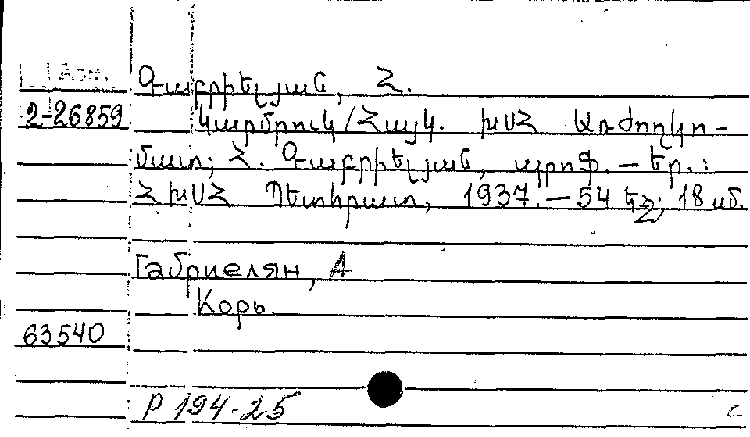 Գաբրիելյան, Հ.
2-26859
Կարմրուկ/Հայկ. ԽՍՀ Առժողկո-
մատ; Հ. Գաբրիելյան, պրոֆ. — Եր.:
ՀԽՍՀ Պետհրատ, 1937. — 54 եջ; 18 սմ.
Габриелян, А
Корь
63540
P 194-25